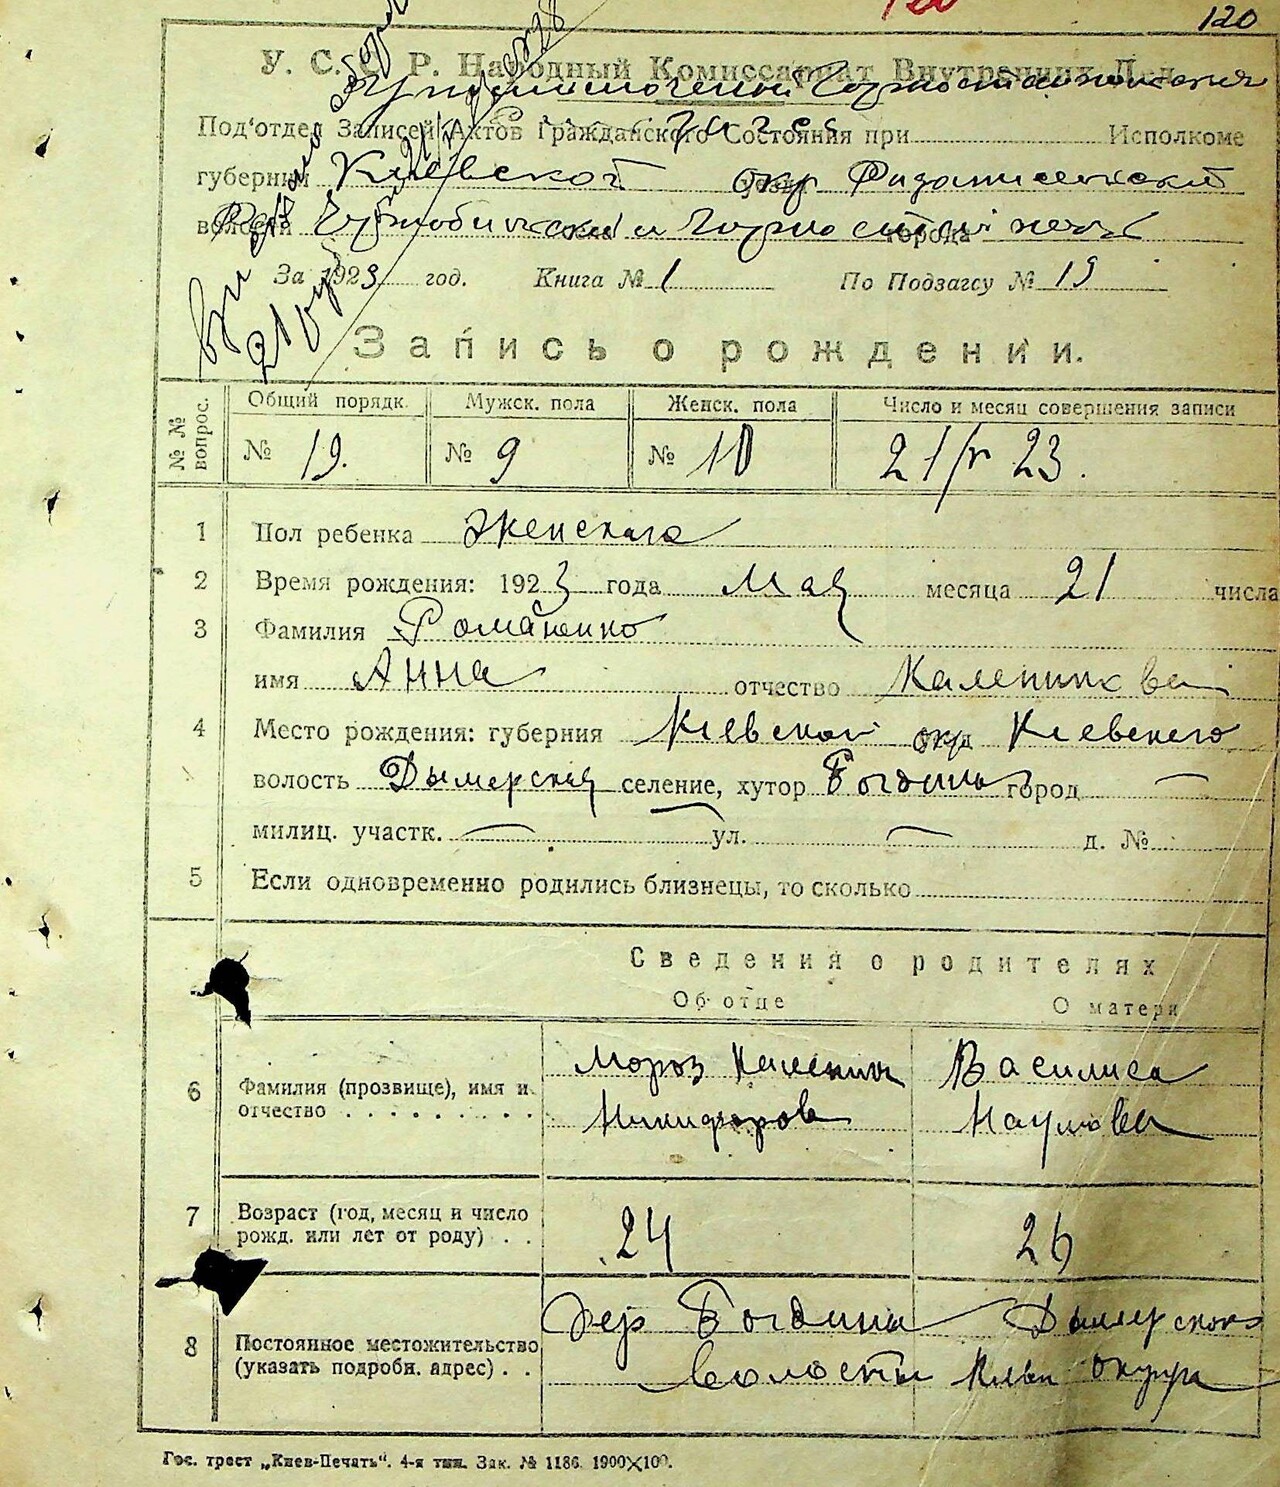 120
У. С. С. Р. Народный Комиссариат Внутренних Дел
Под'отдел Записей Актов Гражданского Состояния при Исполкоме
губернии Киевской окр
волости города
За 1923 год. Книга № 1 По Подзагсу № 19
Запись о рождении.
№ № вопрос. Общий порядк. Мужск. пола Женск. пола Число и месяц совершения записи
№ 19. № 9 № 10 21/V 23.
1 Пол ребенка Женскаго
2 Время рождения: 1923 года Мая месяца 21 числа
3 Фамилия Романенко
имя Анна отчество
4 Место рождения: губерния Киевской окр Киевского
волость Дымерская селение, хутор Богдани город —
милиц. участк. — ул. — д. №
5 Если одновременно родились близнецы, то сколько
Сведения о родителях
Об отце О матери
6 Фамилия (прозвище), имя и отчество Мороз Каленик Василиса
Никифоров Наумова
7 Возраст (год, месяц и число рожд. или лет от роду) 24 26
8 Постоянное местожительство (указать подробн. адрес) Дер Богдани Дымерской
волости Киев округа
Гос. трест „Киев-Печать“. 4-я тип. Зак. № 1186. 1900×100.